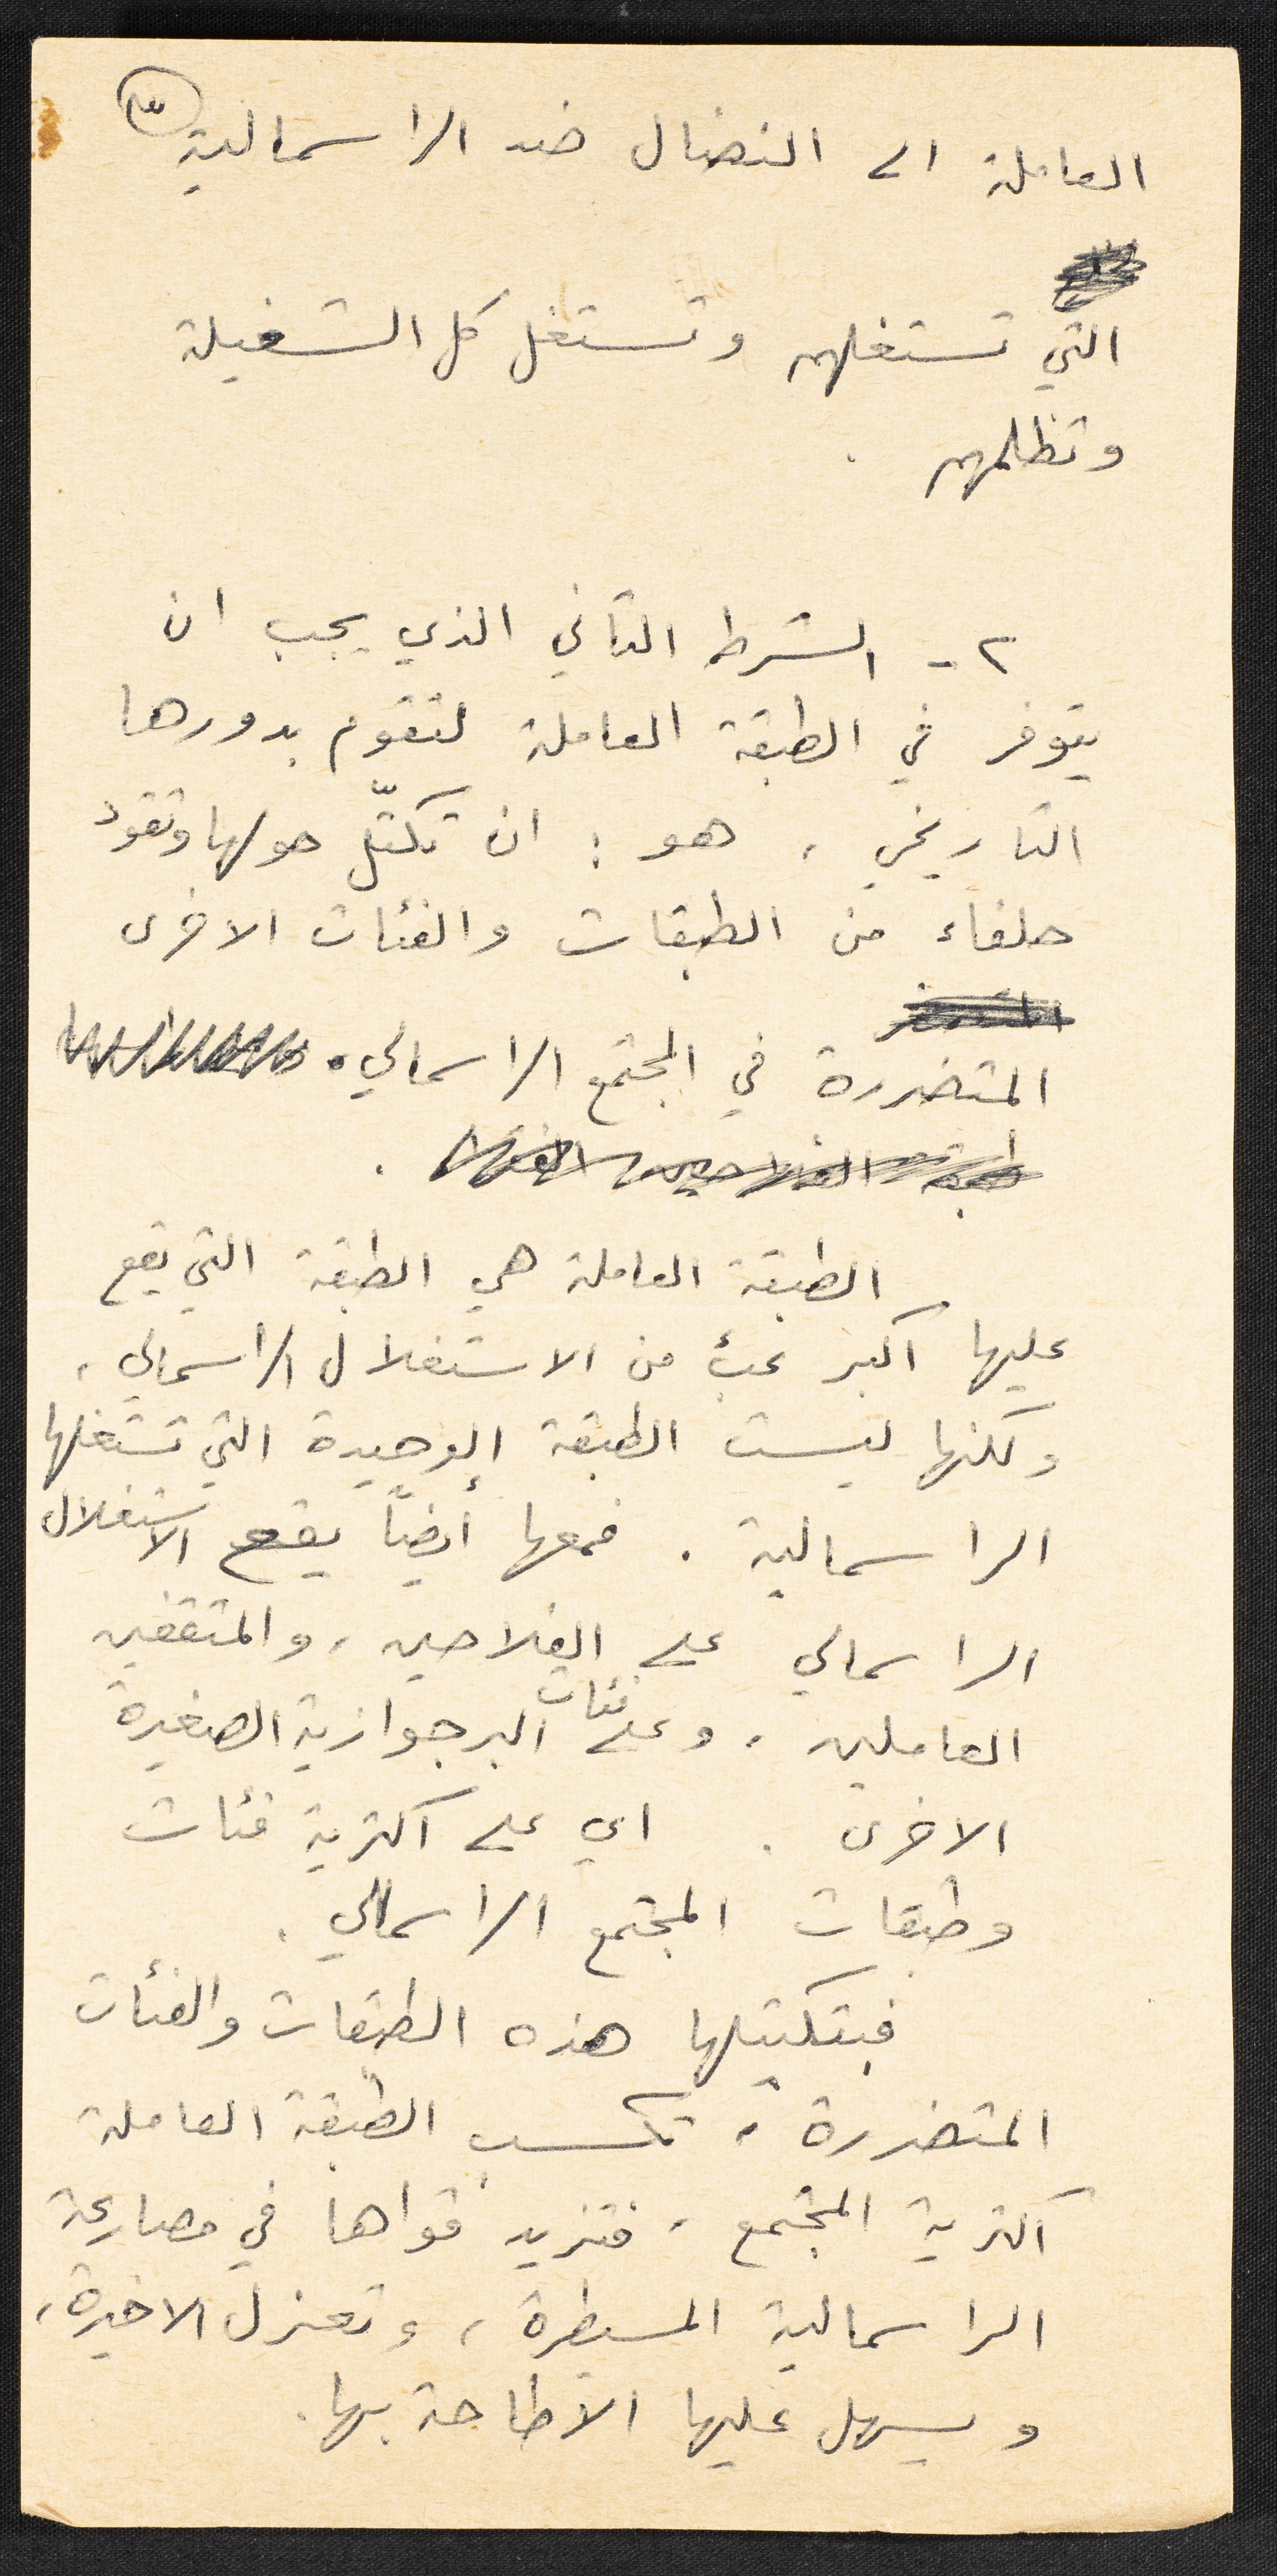 ٣
العاملة الى النضال ضد الراسمالية
التي تستغلهم وتستغل كل الشغيلة
وتظلمهم .
٢ - الشرط الثاني الذي يجب ان
يتوفر في الطبقة العاملة لتقوم بدورها
التاريخي ، هو : ان تكتّل حولها وتقود
حلفاء من الطبقات والفئات الاخرى
المتضررة في المجتمع الراسمالي .
طبقة الفلاحين الفقراء .
الطبقة العاملة هي الطبقة التي يقع
عليها اكبر عبئ من الاستغلال الراسمالي ،
ولكنها ليست الطبقة الوحيدة التي تستغلها
الراسمالية . فمعها أيضاً يقع الاستغلال
الراسمالي على الفلاحين ، والمثقفين
العاملين ، وعلى فئات البرجوازية الصغيرة
الاخرى . اي على اكثرية فئات
وطبقات المجتمع الراسمالي .
فبتكتيلها هذه الطبقات والفئات
المتضررة ، تكسب الطبقة العاملة
اكثرية المجتمع ، فتزيد قواها في مصارعة
الراسمالية المسيطرة ، وتعزل الاخيرة ،
ويسهل عليها الاطاحة بها .